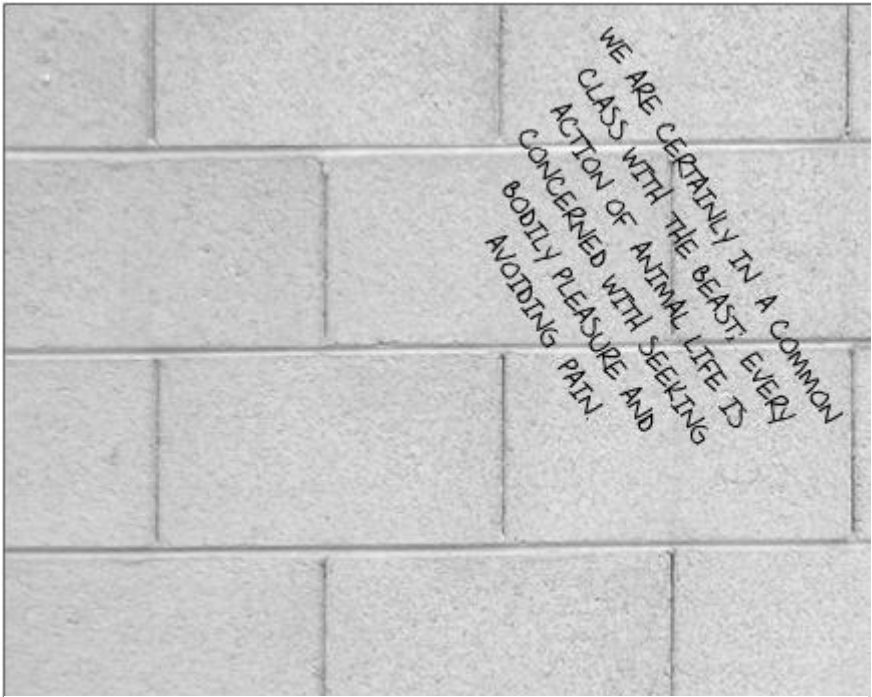 WE ARE CERTAINLY IN A COMMON
CLASS WITH THE BEAST; EVERY
ACTION OF ANIMAL LIFE IS
CONCERNED WITH SEEKING
BODILY PLEASURE AND
AVOIDING PAIN.